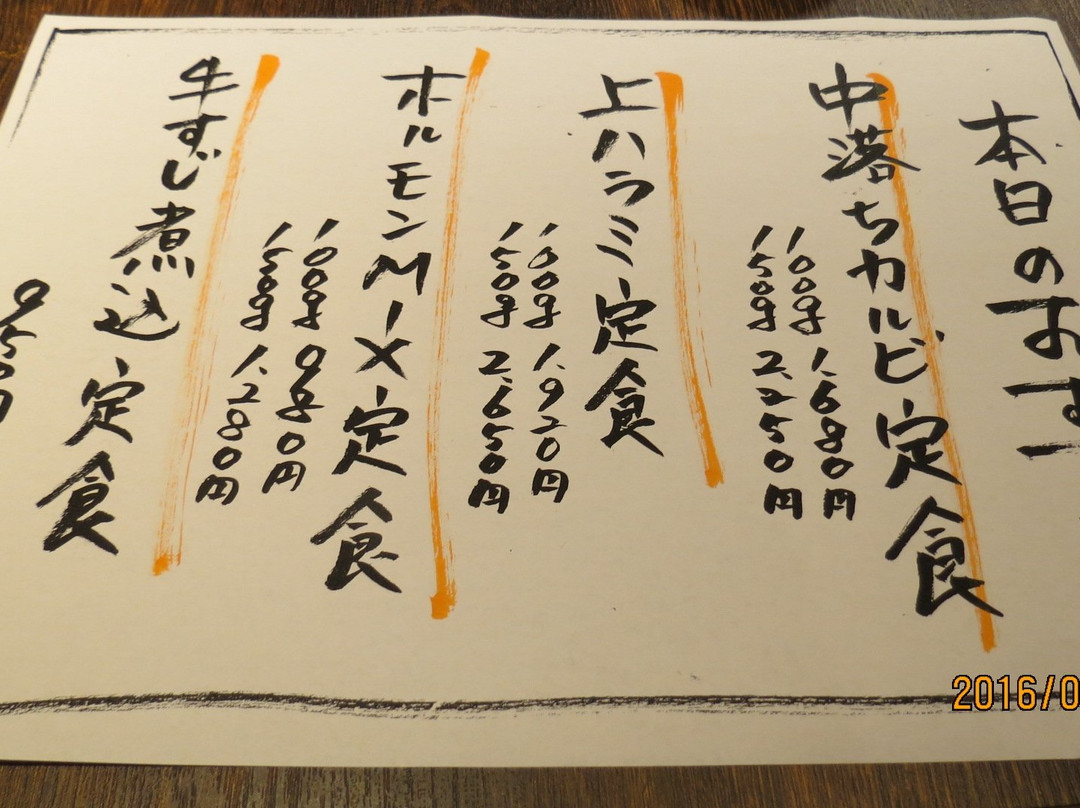 本日のおすー
中落ちカルビ定食
100g 1,680円
150g 2,250円
上ハラミ定食
100g 1,920円
150g 2,650円
ホルモンMIX定食
100g 980円
150g 1,280円
牛すじ煮込定食
950円
2016/0